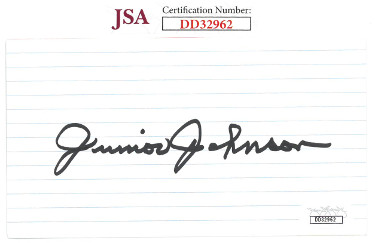 JSA
Certification Number:
DD32962
Junior Johnson
DD32962